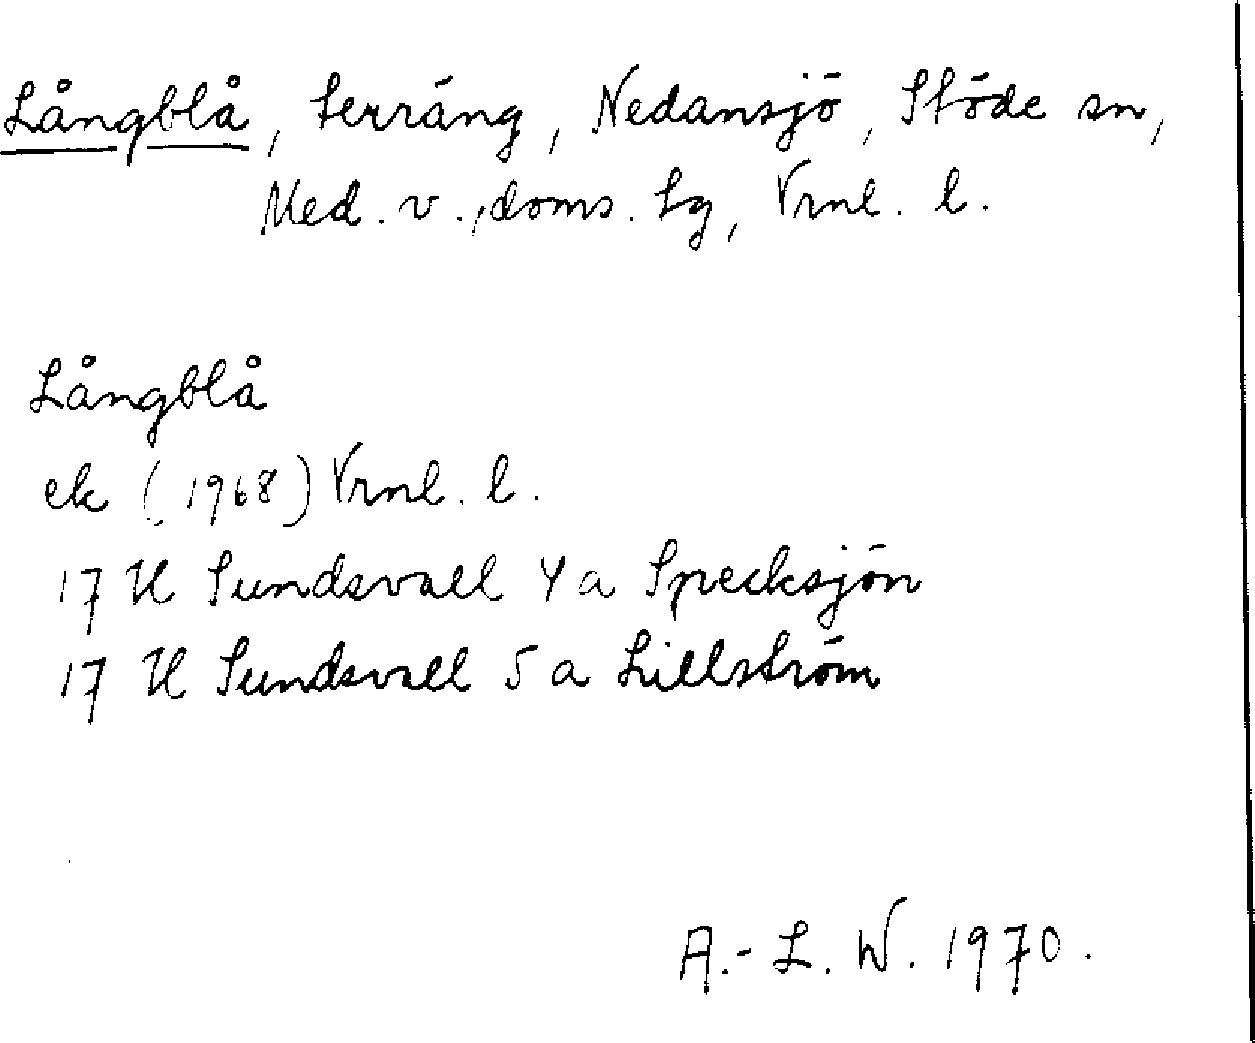 Långblå, terräng, Nedansjö, Stöde sn,
Med. v., doms. tg, Vrnl. l.
Långblå
ek (1968) Vrnl. l.
17 H Sundsvall 4a Specksjön
17 H Sundsvall 5a Lillström
A.-L. W. 1970.